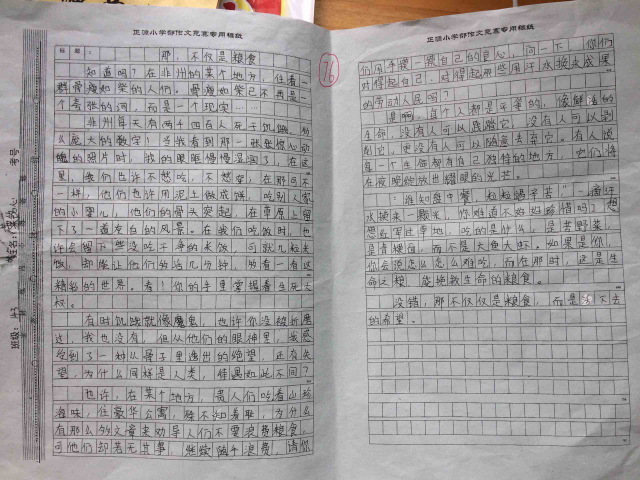 正源小学部作文竞赛专用稿纸
标题：那，不仅是粮食
知道吗？在非洲的某个地方，住着一
群骨瘦如柴的人们。骨瘦如柴已不再是一
个夸张的词，而是一个现实……
非洲每天有两千四百人死于饥饿，多
么庞大的数字！当我看到那一张张惊心动
魄的照片时，我的眼眶慢慢湿润了，在这
里，我们也许不愁吃，不愁穿，在那间不
一样，他们也许用泥土做成饼，吃别人家
的小婴儿，他们的骨头突起，在草原上留
下了一道苍白的风景。在我们吃饭时，也
许会留下些没吃干净的米饭，可就几粒米
饭，却能让他们多活几分钟，多看一看这
精彩的世界。看！你的手里掌握着生死大
权。
有时饥饿就像魔鬼，也许你没被折磨
过，我也没有，但从他们的眼神里，我感
受到了一种从骨子里透出的绝望，还有失
望，为什么同样是人类，待遇如此不同？
也许，在某个地方，贵人们吃着山珍
海味，住豪华公寓，殊不知羞耻，为什么
有那么多文章来劝导人们不要浪费粮食，
可他们却若无其事，继续随手浪费，请你
班级：
考号
76
正源小学部作文竞赛专用稿纸
们用手摸一摸自己的良心，问一下，你们
对得起自己，对得起那些用汗水换来成果
的劳动人民吗？
是啊，每个人都是平等的，像鲜活的
生命，没有人可以践踏它，没有人可以剥
削它，更没有人可以随意去弃它。有人说
每一个生命都有自己独特的地方，它们将
在夜晚绽放出耀眼的光芒。
“谁知盘中餐，粒粒皆辛苦”一滴汗
水换来一颗米，你难道不好好珍惜吗？想
想红军过草地，吃的是什么，是苦野菜，
是青稞面，而不是大鱼大虾。如果是你，
你会抱怨怎么难吃，而在那时，这是生
命之粮，能拯救生命的粮食。
没错，那不仅仅是粮食，而是活下去
的希望。